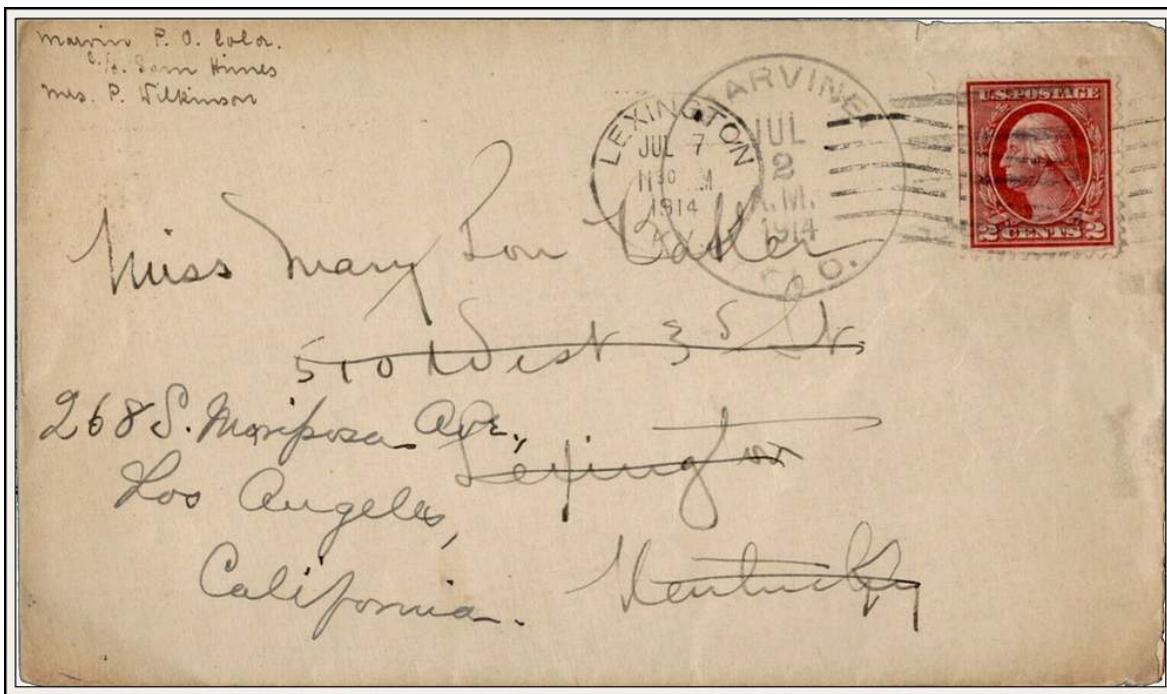 Marvin P. O. Color.
c/o. Sam Himes
Mrs. P. Wilkinson
LEXINGTON
JUL 7
11 30 M
1914
KY.
MARVINE
JUL
2
A.M.
1914
COLO.
U.S. POSTAGE
2 CENTS 2
Miss Mary Lou
510 West 3d St.
268 S. Mariposa Ave.,
Lexington
Los Angeles,
Kentucky
California.